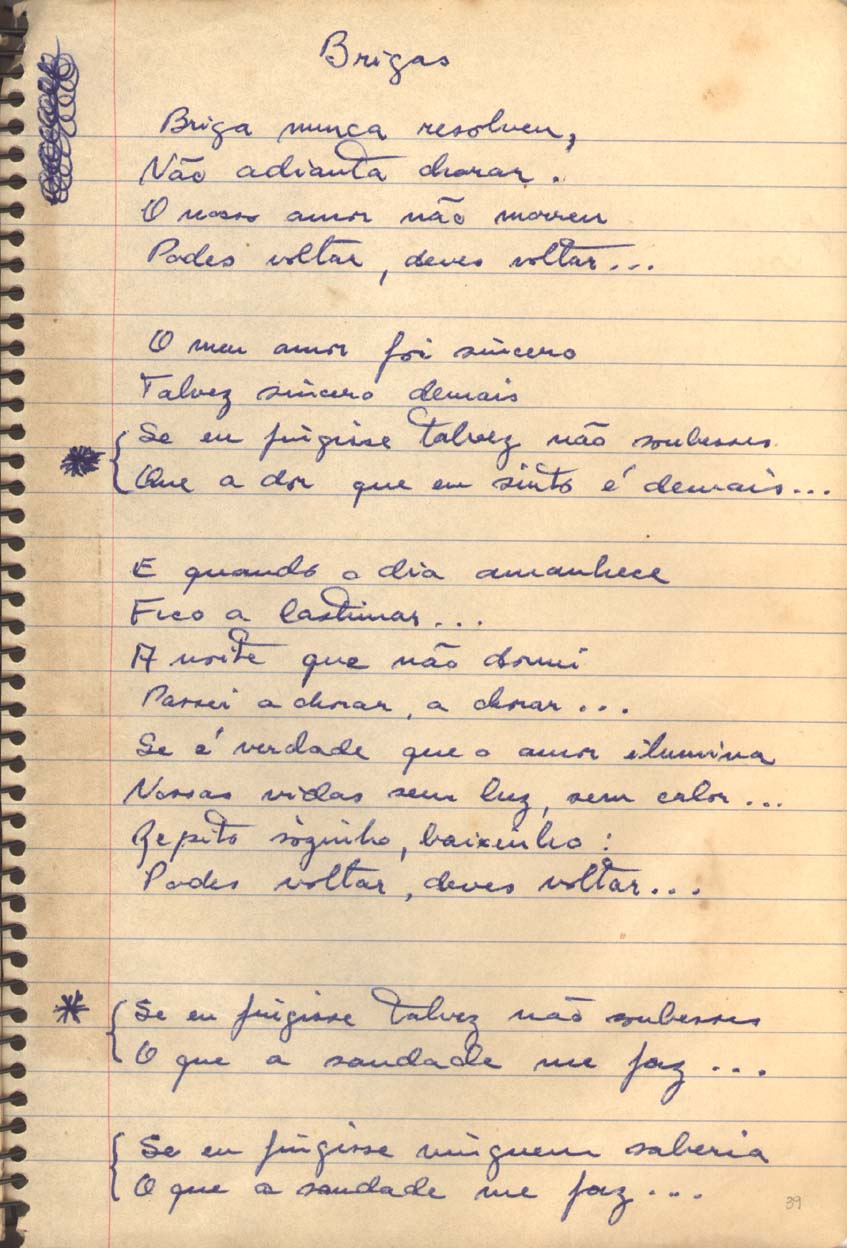 Brigas
Briga nunca resolveu,
Não adianta chorar.
O nosso amor não morreu
Podes voltar, deves voltar...
O meu amor foi sincero
Talvez sincero demais
Se eu fingisse talvez não soubesses
Que a dor que eu sinto é demais...
E quando o dia amanhece
Fico a lastimar...
A noite que não dormi
Passei a chorar, a chorar...
Se é verdade que o amor ilumina
Nossas vidas sem luz, sem calor...
Repito sòzinho, baixinho:
Podes voltar, deves voltar...
Se eu fingisse talvez não soubesses
O que a saudade me faz...
Se eu fingisse ninguem saberia
O que a saudade me faz...
39